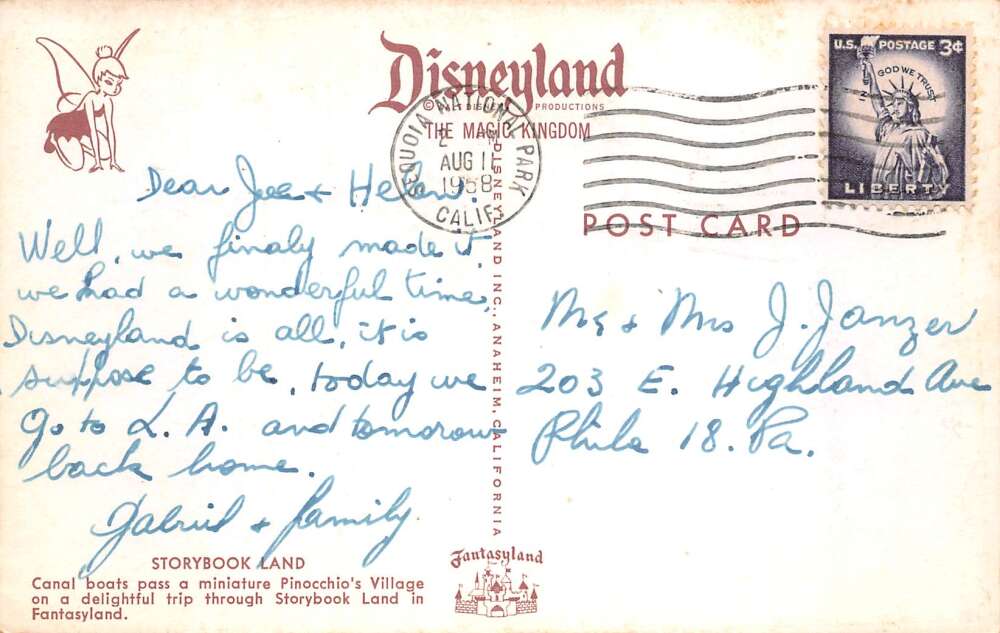 Disneyland
© WALT DISNEY PRODUCTIONS
THE MAGIC KINGDOM
SEQUOIA NATIONAL PARK
AUG 11
1958
CALIF.
U.S. POSTAGE 3¢
IN GOD WE TRUST
LIBERTY
POST CARD
Dear Joe + Helen!
Well, we finaly made it,
we had a wonderful time,
Disneyland is all, it is
suppose to be, today we
go to L. A. and tomorow
back home.
Gabriel + family
DISNEYLAND INC., ANAHEIM, CALIFORNIA
Mr + Mrs J. Janzer
203 E. Highland Ave
Phila 18. Pa.
STORYBOOK LAND
Canal boats pass a miniature Pinocchio's Village
on a delightful trip through Storybook Land in
Fantasyland.
Fantasyland